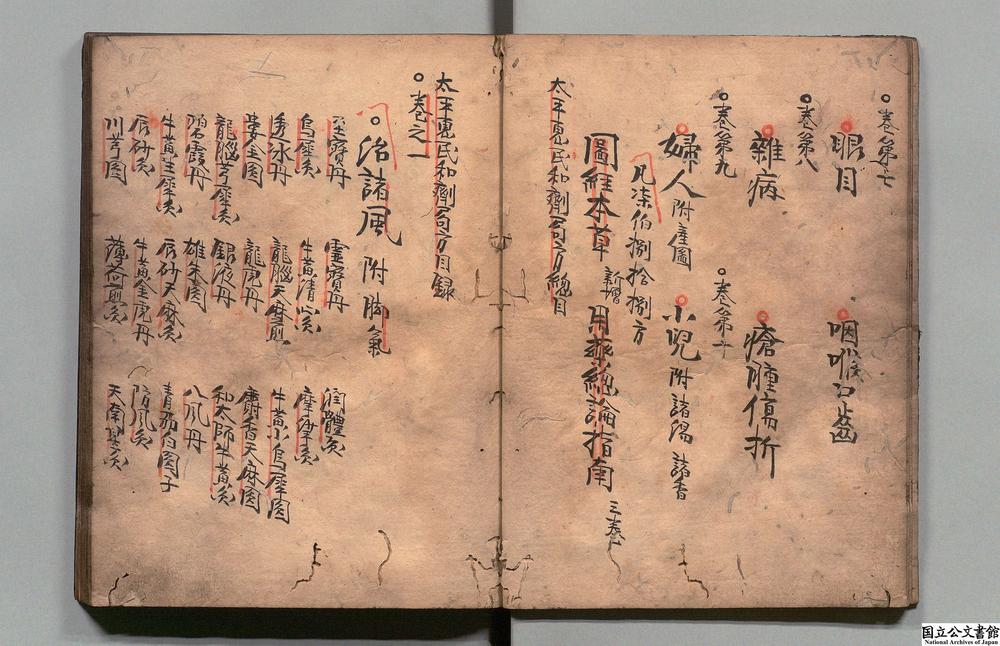 ○巻第七
眼目 咽喉口齒
○巻第八
雜病 瘡腫傷折
○巻第九 ○巻第十
婦人附産圖 小兒附諸湯 諸香
凡柒佰捌拾捌方
圖經本草 新增 用藥總論指南 三巻
太平惠民和劑局方總目
太平惠民和劑局方目録
○巻之一
○治諸風 附脚氣
至寶丹 靈寶丹 潤體丸
烏犀丸 牛黄清心丸 摩挲丸
透冰丹 龍腦天麻煎 牛黄小烏犀圓
婁金圓 龍虎丹 麝香天麻圓
龍腦芎犀丸 銀液丹 和太師牛黄丸
碧霞丹 雄朱圓 八風丹
牛黄生犀丸 辰砂天麻丸 青州白圓子
辰砂丸 牛黄金虎丹 防風丸
川芎圓 薄荷煎丸 天南星丸
国立公文書館
National Archives of Japan